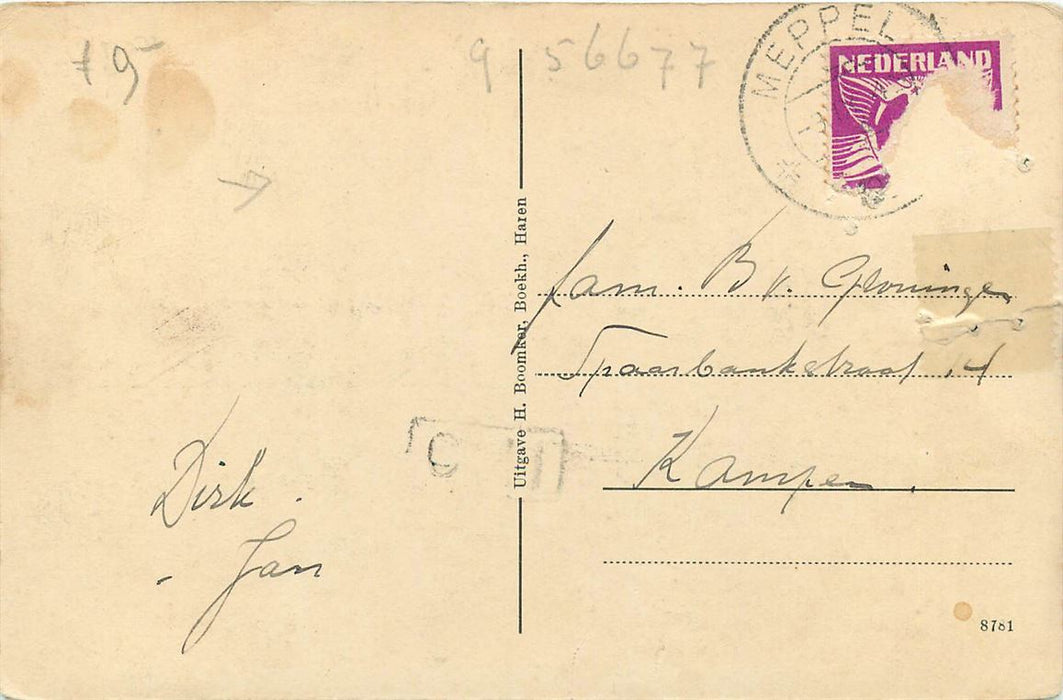 +9-
9 56677
MEPPEL
NEDERLAND
Uitgave H. Boomker, Boekh., Haren
fam. B v. Groningen
Spaarbankstraat 14
Kampen.
Dirk.
- Jan
8781